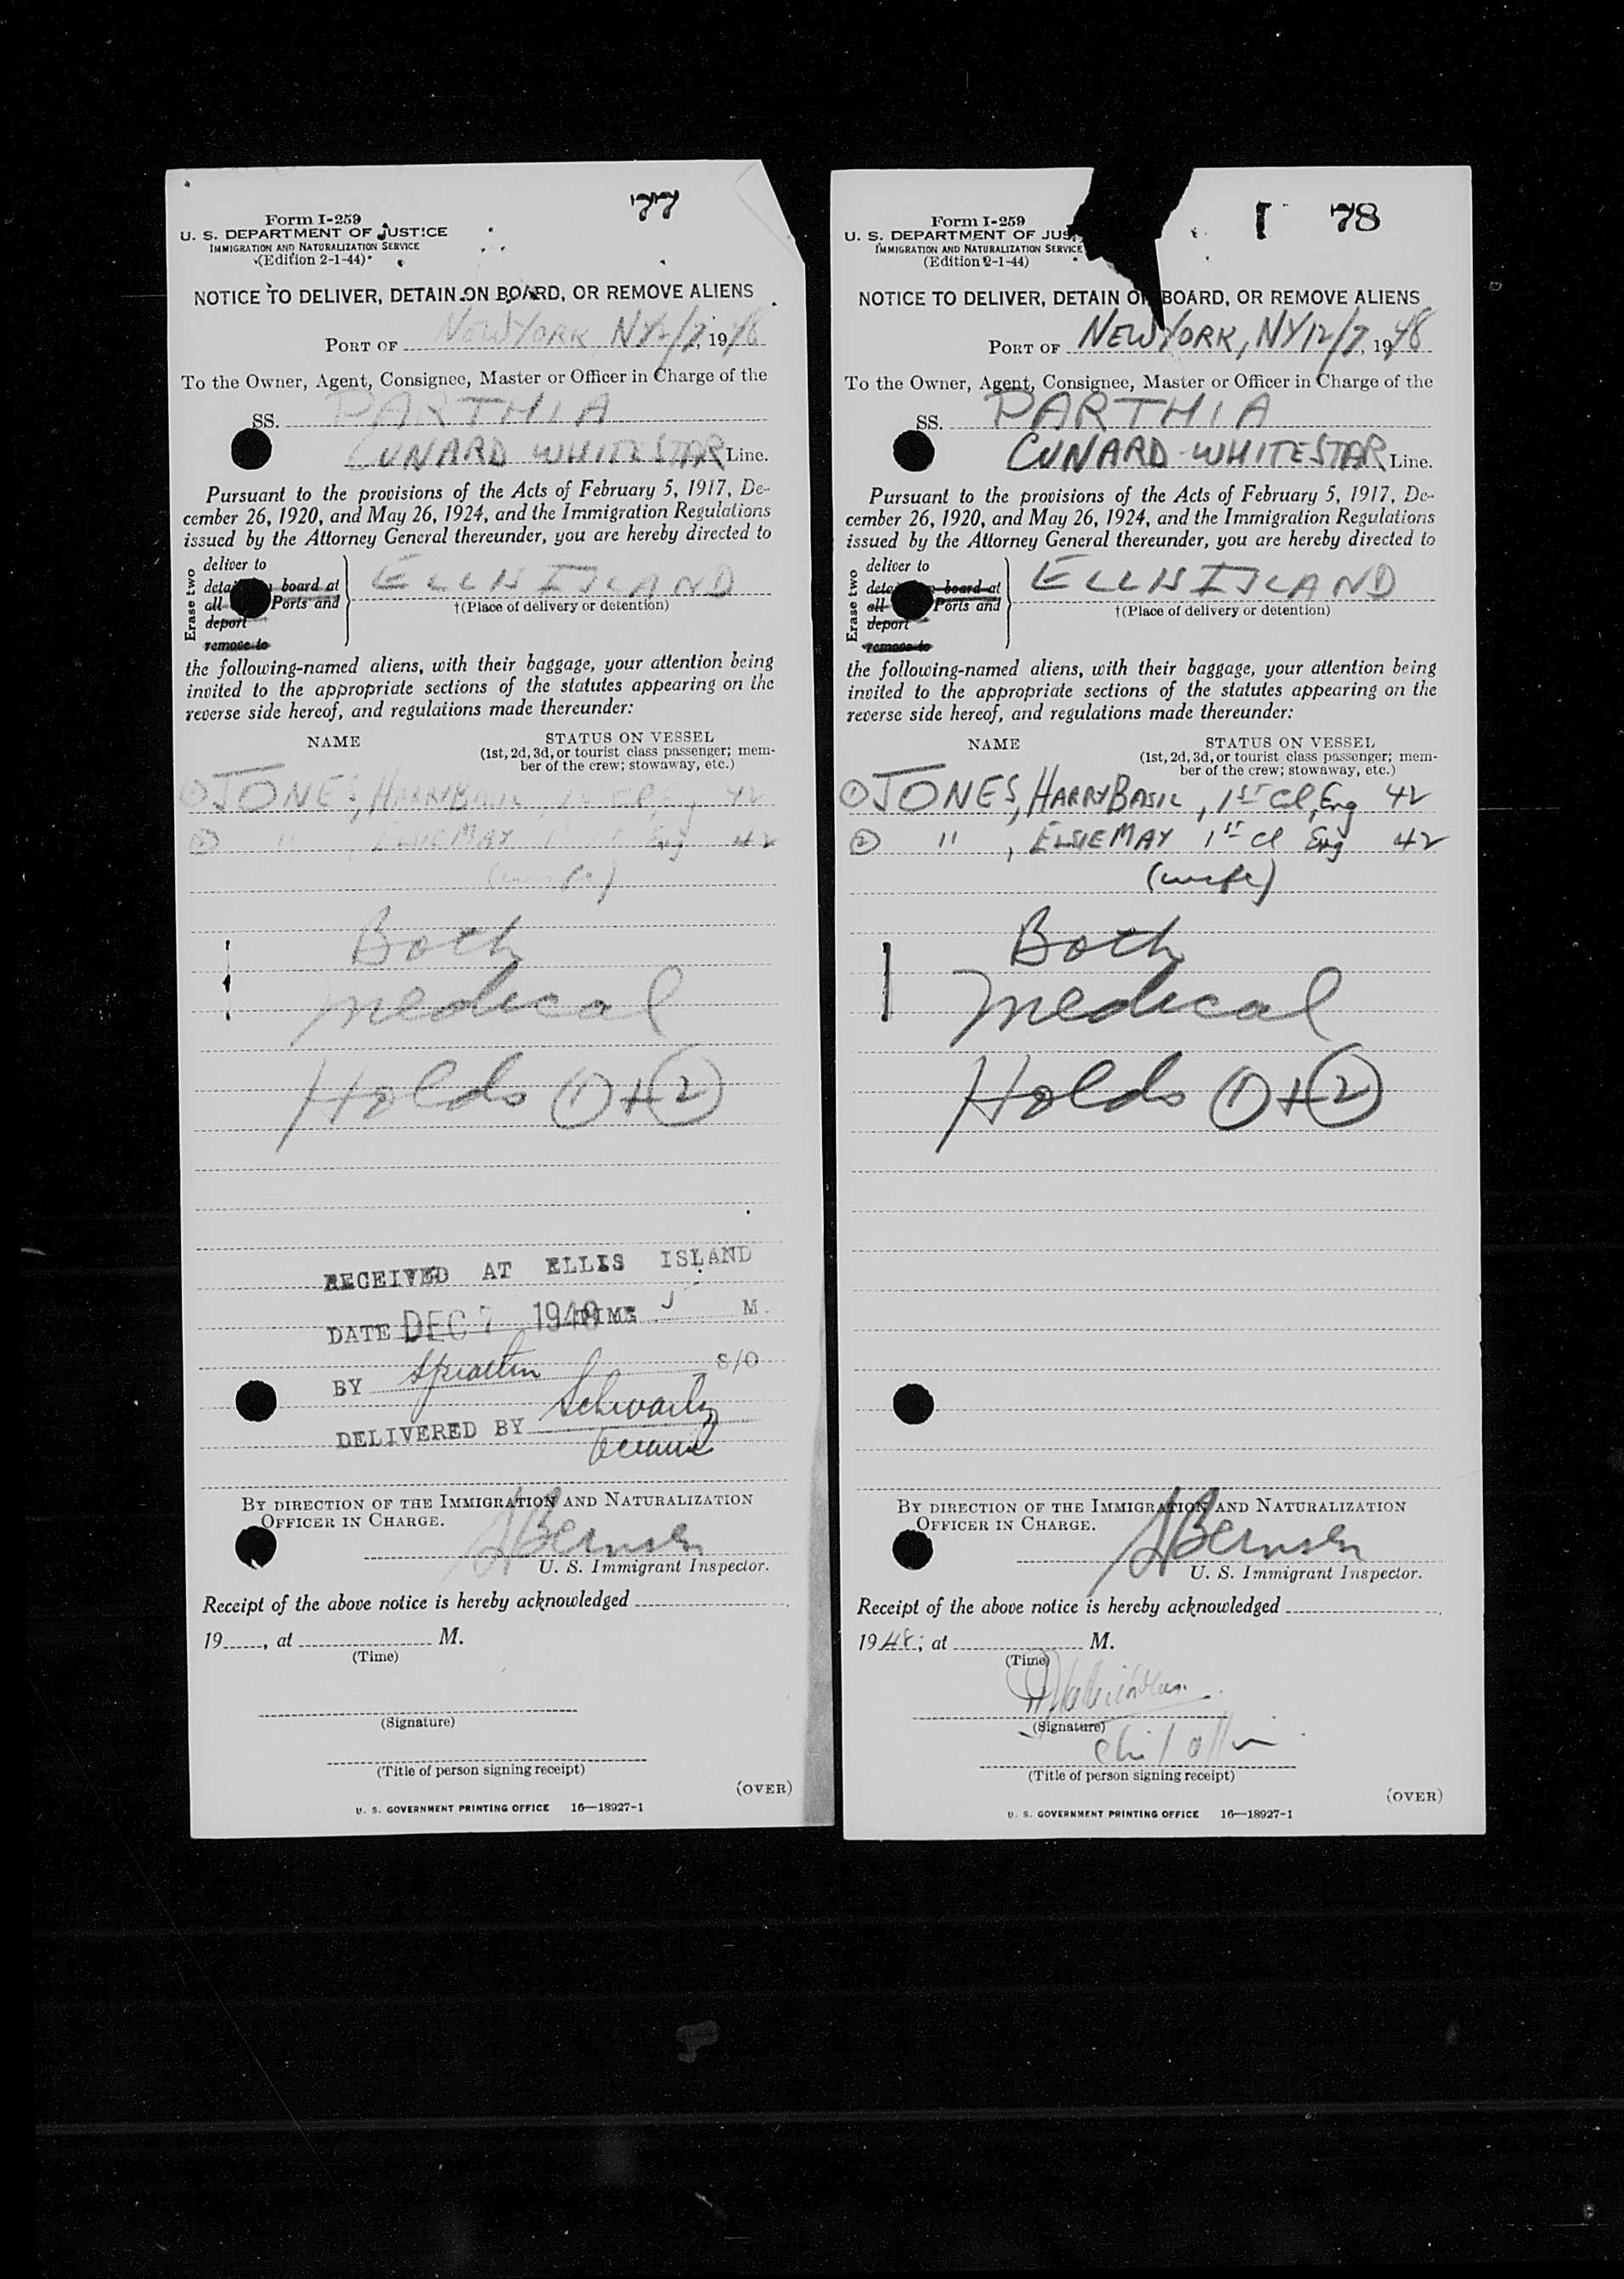 77
Form I-259
U. S. DEPARTMENT OF JUSTICE
IMMIGRATION AND NATURALIZATION SERVICE
(Edition 2-1-44)
NOTICE TO DELIVER, DETAIN ON BOARD, OR REMOVE ALIENS
PORT OF NEW YORK, NY 12/7, 1948
To the Owner, Agent, Consignee, Master or Officer in Charge of the
SS. PARTHIA
CUNARD WHITE STAR Line.
Pursuant to the provisions of the Acts of February 5, 1917, De-
cember 26, 1920, and May 26, 1924, and the Immigration Regulations
issued by the Attorney General thereunder, you are hereby directed to
Erase two
deliver to
board at
all Ports and
deport
remove to
ELLIS ISLAND
†(Place of delivery or detention)
the following-named aliens, with their baggage, your attention being
invited to the appropriate sections of the statutes appearing on the
reverse side hereof, and regulations made thereunder:
NAME STATUS ON VESSEL
(1st, 2d, 3d, or tourist class passenger; mem-
ber of the crew; stowaway, etc.)
① JONES, HARRY BASIL, 1st Cl, Eng 42
② " , ELSIE MAY 1st Cl Eng 42
(wife)
Both
medical
Holds ① + ②
RECEIVED AT ELLIS ISLAND
DATE DEC 7 1948 TIME M.
BY S/O
DELIVERED BY Schwartz
BY DIRECTION OF THE IMMIGRATION AND NATURALIZATION
OFFICER IN CHARGE.
U. S. Immigrant Inspector.
Receipt of the above notice is hereby acknowledged
19 , at M.
(Time)
(Signature)
(Title of person signing receipt)
(OVER)
U. S. GOVERNMENT PRINTING OFFICE 16—18927-1
I 78
Form I-259
U. S. DEPARTMENT OF JUS
IMMIGRATION AND NATURALIZATION SERVICE
(Edition 2-1-44)
NOTICE TO DELIVER, DETAIN ON BOARD, OR REMOVE ALIENS
PORT OF NEW YORK, NY 12/7, 1948
To the Owner, Agent, Consignee, Master or Officer in Charge of the
SS. PARTHIA
CUNARD WHITE STAR Line.
Pursuant to the provisions of the Acts of February 5, 1917, De-
cember 26, 1920, and May 26, 1924, and the Immigration Regulations
issued by the Attorney General thereunder, you are hereby directed to
Erase two
deliver to
board at
all Ports and
deport
remove to
ELLIS ISLAND
†(Place of delivery or detention)
the following-named aliens, with their baggage, your attention being
invited to the appropriate sections of the statutes appearing on the
reverse side hereof, and regulations made thereunder:
NAME STATUS ON VESSEL
(1st, 2d, 3d, or tourist class passenger; mem-
ber of the crew; stowaway, etc.)
① JONES, HARRY BASIL, 1st Cl, Eng 42
② " , ELSIE MAY 1st Cl Eng 42
(wife)
Both
medical
Holds ① + ②
BY DIRECTION OF THE IMMIGRATION AND NATURALIZATION
OFFICER IN CHARGE.
U. S. Immigrant Inspector.
Receipt of the above notice is hereby acknowledged
1948, at M.
(Time)
(Signature)
(Title of person signing receipt)
(OVER)
U. S. GOVERNMENT PRINTING OFFICE 16—18927-1